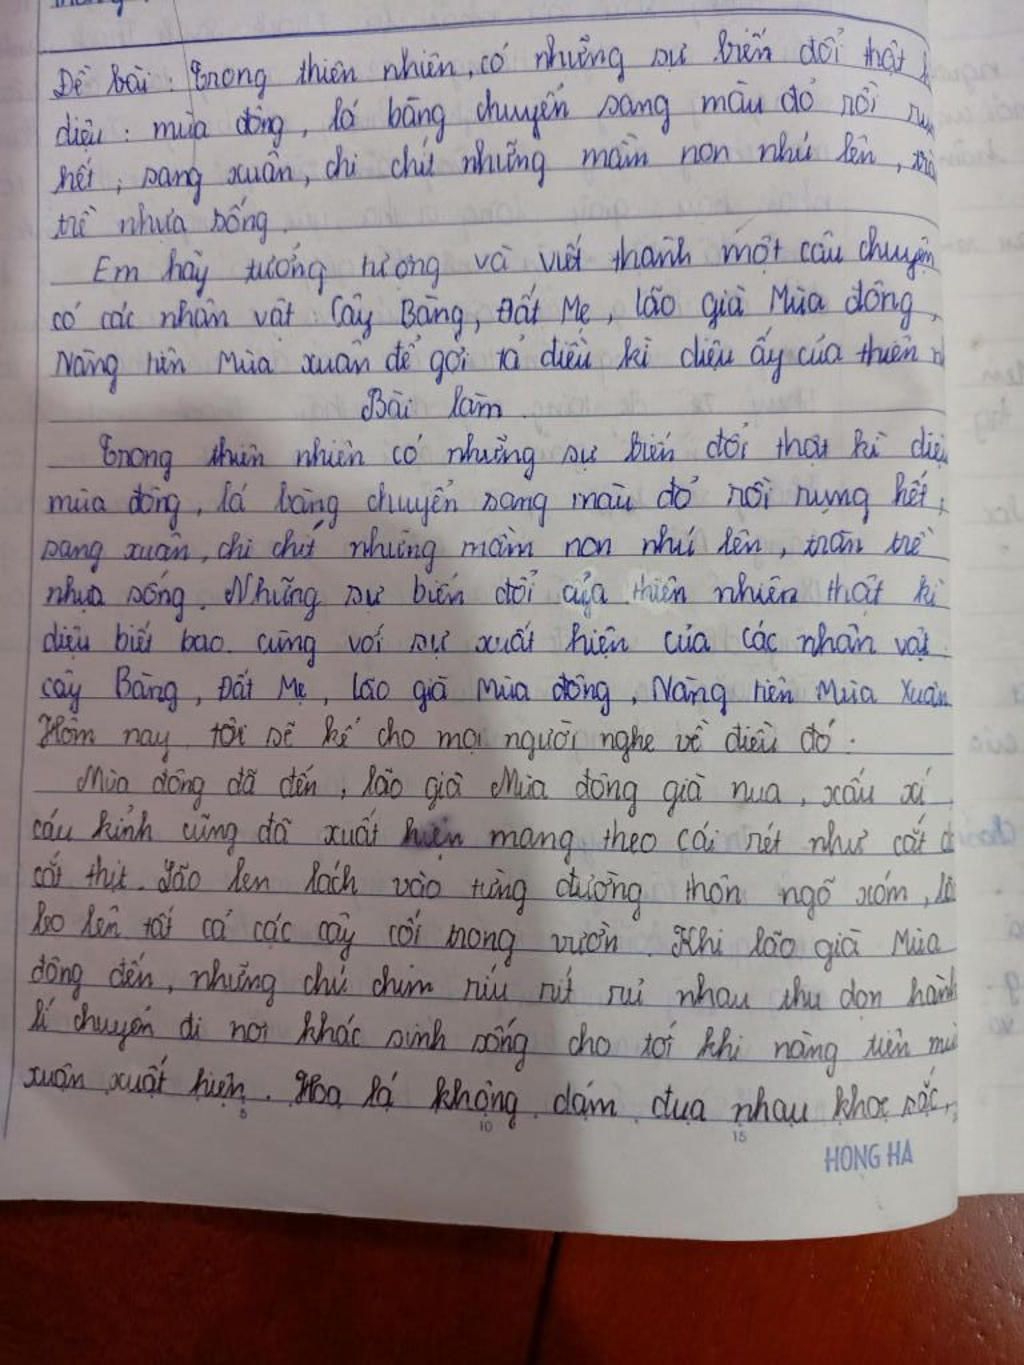 Đề bài: Trong thiên nhiên, có những sự biến đổi thật
diệu: mùa đông, lá bàng chuyển sang màu đỏ rồi
hết; sang xuân, chi chít những mầm non nhú lên,
trề nhựa sống.
Em hãy tưởng tượng và viết thành một câu chuyện
có các nhân vật: Cây Bàng, Đất Mẹ, lão già Mùa đông,
Nàng tiên Mùa xuân để gợi tả điều kì diệu ấy của thiên
Bài làm
Trong thiên nhiên có những sự biến đổi thật kì diệu
mùa đông, lá bàng chuyển sang màu đỏ rồi rụng hết;
sang xuân, chi chít những mầm non nhú lên, tràn trề
nhựa sống. Những sự biến đổi của thiên nhiên thật kì
diệu biết bao cùng với sự xuất hiện của các nhân vật
cây Bàng, Đất Mẹ, lão già Mùa đông, Nàng tiên Mùa Xuân
Hôm nay, tôi sẽ kể cho mọi người nghe về điều đó.
Mùa đông đã đến, lão già Mùa đông già nua, xấu xí
cáu kỉnh cũng đã xuất hiện mang theo cái rét như cắt
cắt thịt. Lão len lách vào từng đường thôn ngõ xóm,
leo lên tất cả các cây cối trong vườn. Khi lão già Mùa
đông đến, những chú chim ríu rít rủi nhau thu dọn hành
lí chuyển đi nơi khác sinh sống cho tới khi nàng tiên
xuân xuất hiện. Hoa lá không dám đua nhau khoe sắc,
5 10 15
HONG HA